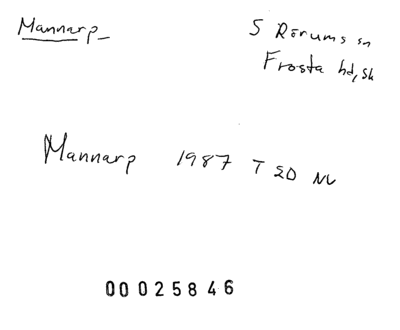 Mannarp
S Rörums sn
Frosta hd, Sk
Mannarp 1987 T 20 NV
00025846